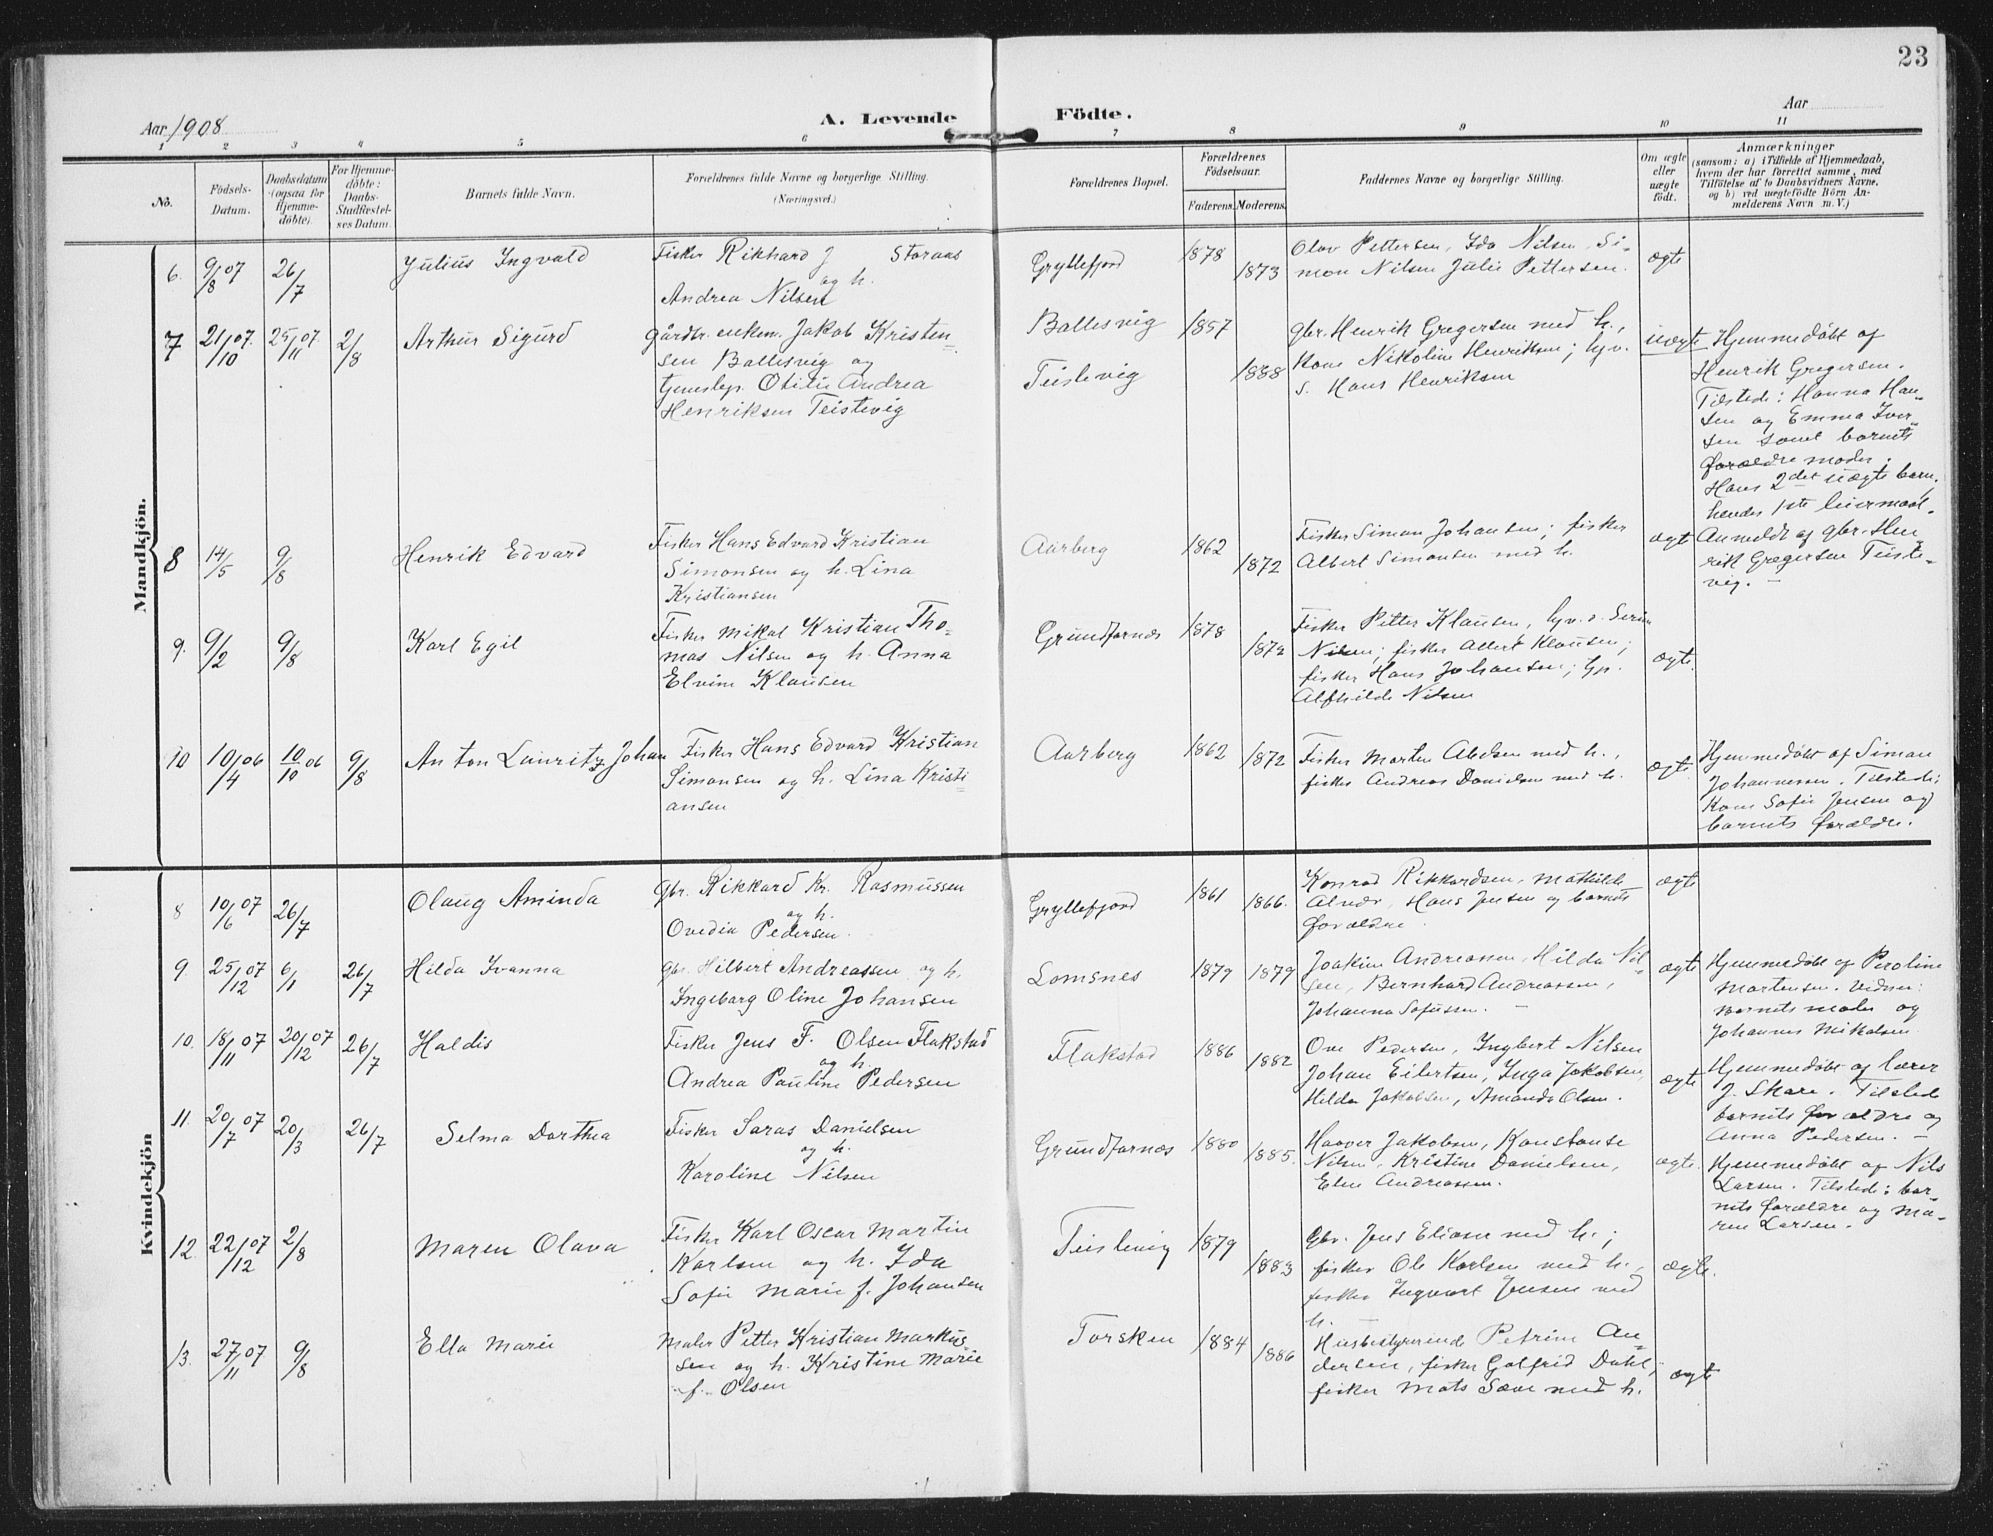 23
Aar 1908
A. Levende Födte.
Aar
1 2 3 4 5 6 7 8 9 10 11
No.
Födsels-
Datum.
Daabsdatum
(ogsaa for
Hjemme-
döbte).
For Hjemme-
döbte:
Daabs-
Stadfæstel-
ses Datum.
Barnets fulde Navn.
Forældrenes fulde Navne og borgerlige Stilling.
(Næringsvei.)
Forældrenes Bopæl.
Forældrenes
Födselsaar.
Faderens. Moderens.
Faddernes Navne og borgerlige Stilling.
Om ægte
eller
uægte
födt.
Anmærkninger
(saasom: a) i Tilfælde af Hjemmedaab,
hvem der har forrettet samme, med
Tilföielse af to Daabsvidners Navne,
og b) ved uægtefödte Börn An-
melderens Navn m. V.)
Mandkjön.
6. 9/8 07 26/7 Julius Ingvald
Fisker Rikhard J Storaas
og h.
Andrea Nilsen
Gryllefjord 1878 1873
Olav Pettersen, Ida Nilsen, Si-
mon Nilsen Julie Pettersen.
ægte
7 21/10 07. 25/11 07. 2/8 Arthur Sigurd
gårdbr. enkem. Jakob Kristen-
sen Ballesvig og
tjenestep. Otitie Andrea
Henriksen Teistevig
Ballesvig 1857
Teistevig 1888
gbr. Henrik Gregersen med h.,
Kone Nikoline Henriksen; hjv.
s. Hans Henriksen
uægte
Hjemmedøbt af
Henrik Gregersen.
Tilstede: Hanna Han-
sen og Emma Iver-
sen samt barnets
forældre moder.
Hans 2det uægte barn,
hendes 1ste leiermaal.
Anmeldt af gbr. Hen-
rik Gregersen Teiste-
vig. -
8 14/5 9/8 Henrik Edvard
Fisker Hans Edvard Kristian
Simonsen og h. Lina
Kristiansen
Aarberg 1862 1872
Fisker Simon Johansen; fisker
Albert Simonsen med h.
ægte
9. 9/2 9/8 Karl Egil
Fisker Mikal Kristian Tho-
mas Nilsen og h. Anna
Elvine Klausen
Grundfarnæs 1878 1872
Fisker Petter Klausen, hjv. d. Serine
Nilsen; fisker Albert Klausen;
fisker Hans Johansen; tjp.
Alfhilde Nilsen
ægte.
10 10/4 06 10/10 06 9/8 Anton Lauritz Johan
Fisker Hans Edvard Kristian
Simonsen og h. Lina Kristi-
ansen
Aarberg 1862 1872
Fisker Morten Abelsen med h.,
fisker Andreas Danielsen med h.
ægte
Hjemmedøbt af Simon
Johannessen. Tilstede:
Kone Sofie Jensen og
barnets forældre.
Kvindekjön
8 10/6 07 26/7 Olaug Aminda
Gbr. Rikkard Kr. Rasmussen
og h.
Ovedia Pedersen.
Gryllefjord 1861 1866.
Konrad Rikkardsen, Mathilde
Hans Jensen og barnets
forældre.
ægte
9. 25/12 07 6/1 26/7 Hilda Ivanna
Gbr. Hilbert Andreassen og h.
Ingeborg Oline Johansen
Lomsnes 1879 1879
Joakim Andreassen, Hilda Nil-
sen, Bernhard Andreassen,
Johanna Sofussen. -
ægte
Hjemmedøbt af Peroline
Mortensen. Vidner:
Barnets moder og
Johannes Mikalsen
10. 18/11 07 20/12 07 26/7 Haldis
Fisker Jens F. Olsen Flakstad
og h.
Andrea Pauline Pedersen
Flakstad 1886 1882
Ove Pedersen, Ingbert Nilsen
Johan Eilertsen, Inga Jakobsen,
Hilda Jakobsen, Amanda Olsen.
ægte
Hjemmedøbt af lærer
J. Skare. Tilstede
barnets forældre og
Anna Pedersen. -
11. 20/7 07 20/3 26/7 Selma Dorthea
Fisker Saras Danielsen
og h.
Karoline Nilsen
Grundfarnæs 1880 1885.
Haaver Jakobsen, Konstanse
Nilsen, Kristine Danielsen,
Eline Andreassen.
ægte.
Hjemmedøbt af Nils
Larsen. Tilstede: bar-
nets forældre og Ma-
ren Larsen.
12. 22/12 07 2/8 Maren Olava
Fisker Karl Oscar Martin
Karlsen og h. Ida
Sofie Marie f. Johansen
Teistevig 1879 1883
Gbr. Jens Eliasen med h.;
fisker Ole Karlsen med h.,
fisker Ingvart Jensen med
h. -
ægte.
13. 27/11 07 9/8 Ella Marie
Maler Petter Kristian Markus-
sen og h. Kristine Marie
f. Olsen
Torsken 1884 1886
Husbestyrerinde Petrine An-
dersen, fisker Galfrid Dahl;
fisker Mats Sæve med h.
ægte